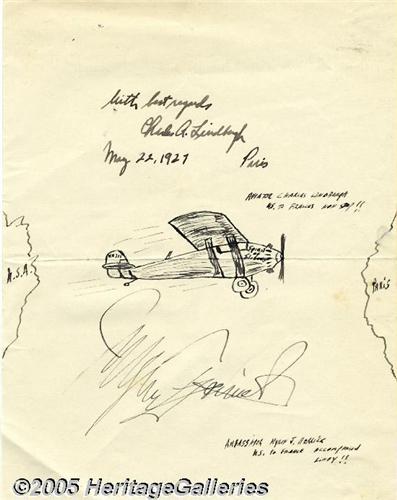 With best regards
Charles A. Lindbergh
May 22, 1927 Paris
AVIATOR CHARLES LINDBERGH
U.S. TO FRANCE NON STOP!!
Spirit
of
St. Louis
U.S.A.
PARIS
AMBASSADOR MYRON T. HERRICK
U.S. TO FRANCE ACCOMPANIED
LINDY!!
©2005 HeritageGalleries